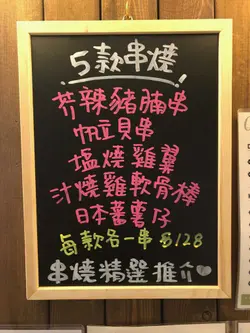 5款串燒
芥辣豬腩串
帆立貝串
塩燒雞翼
汁燒雞軟骨棒
日本蕃薯仔
每款各一串 $128
串燒精選推介